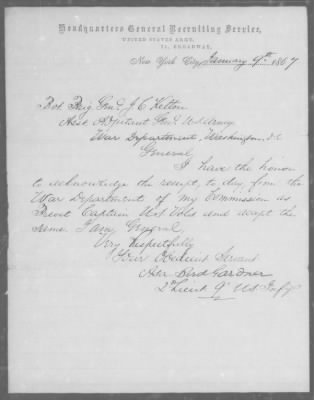 Headquarters General Recruiting Service,
UNITED STATES ARMY,
BROADWAY,
New York City, January 9th 1867
Bvt Brig Genl J C Kelton
Asst Adjutant Genl US Army
War Department, Washington, DC
General
I have the honor
to acknowledge the receipt, to day, from the
War Department of my Commission as
Brevet Captain US Vols and accept the
same. I am, General
Very respectfully
Your Obedient Servant
Asa Bird Gardner
2d Lieut 9th US Infy